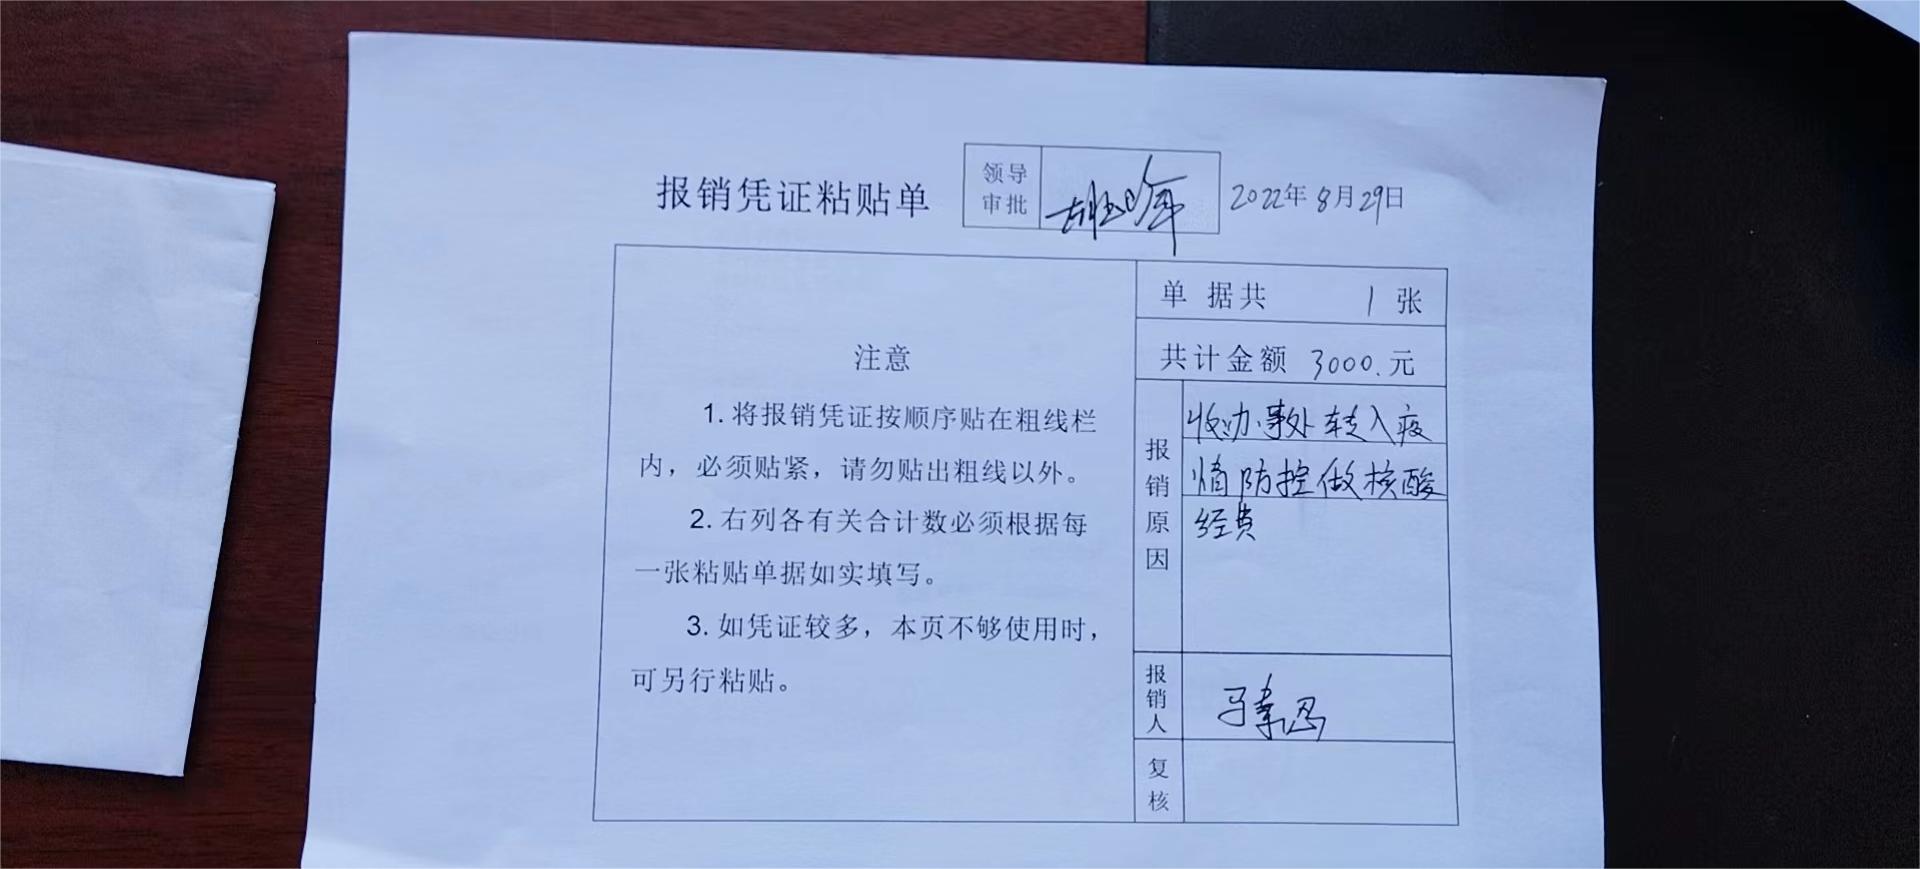 报销凭证粘贴单
领导
审批
2022年8月29日
单据共 1 张
共计金额 3000.元
注意
1. 将报销凭证按顺序贴在粗线栏
内，必须贴紧，请勿贴出粗线以外。
2. 右列各有关合计数必须根据每
一张粘贴单据如实填写。
3. 如凭证较多，本页不够使用时，
可另行粘贴。
报销原因
收办事处转入疫
情防控做核酸
经费
报销人
复核